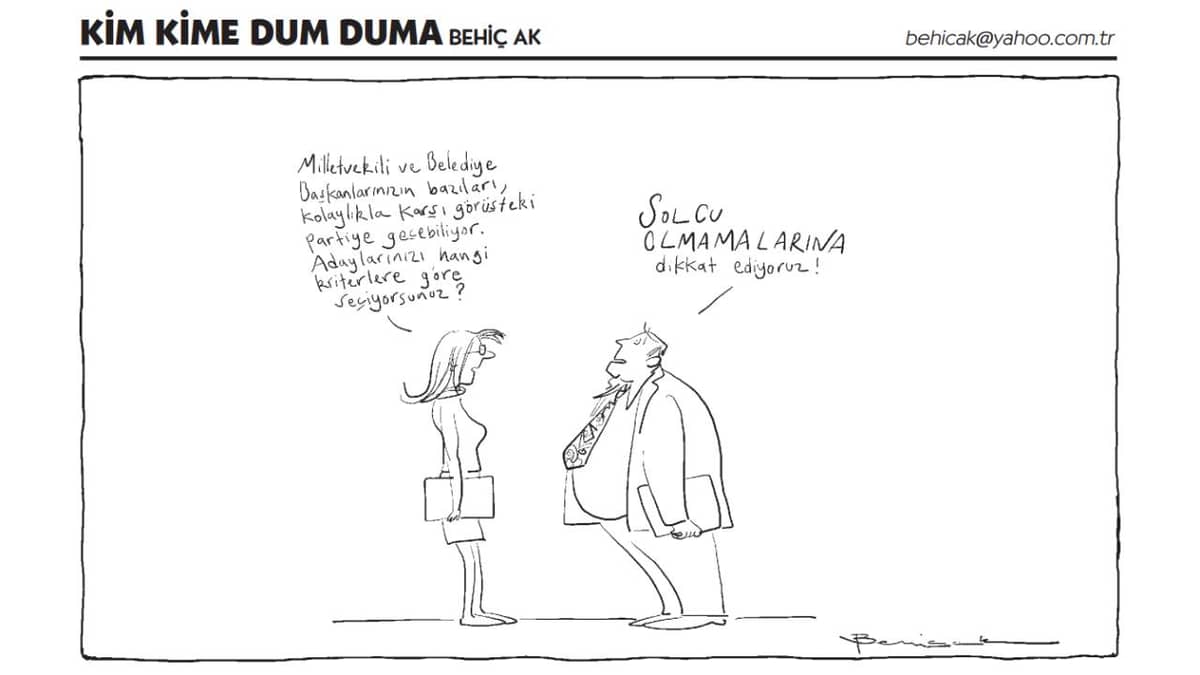 KİM KİME DUM DUMA BEHİÇ AK
behicak@yahoo.com.tr
Milletvekili ve Belediye
Başkanlarınızın bazıları,
kolaylıkla karşı görüşteki
partiye geçebiliyor.
Adaylarınızı hangi
kriterlere göre
seçiyorsunuz?
SOLCU
OLMAMALARINA
dikkat ediyoruz!
Behiç Ak